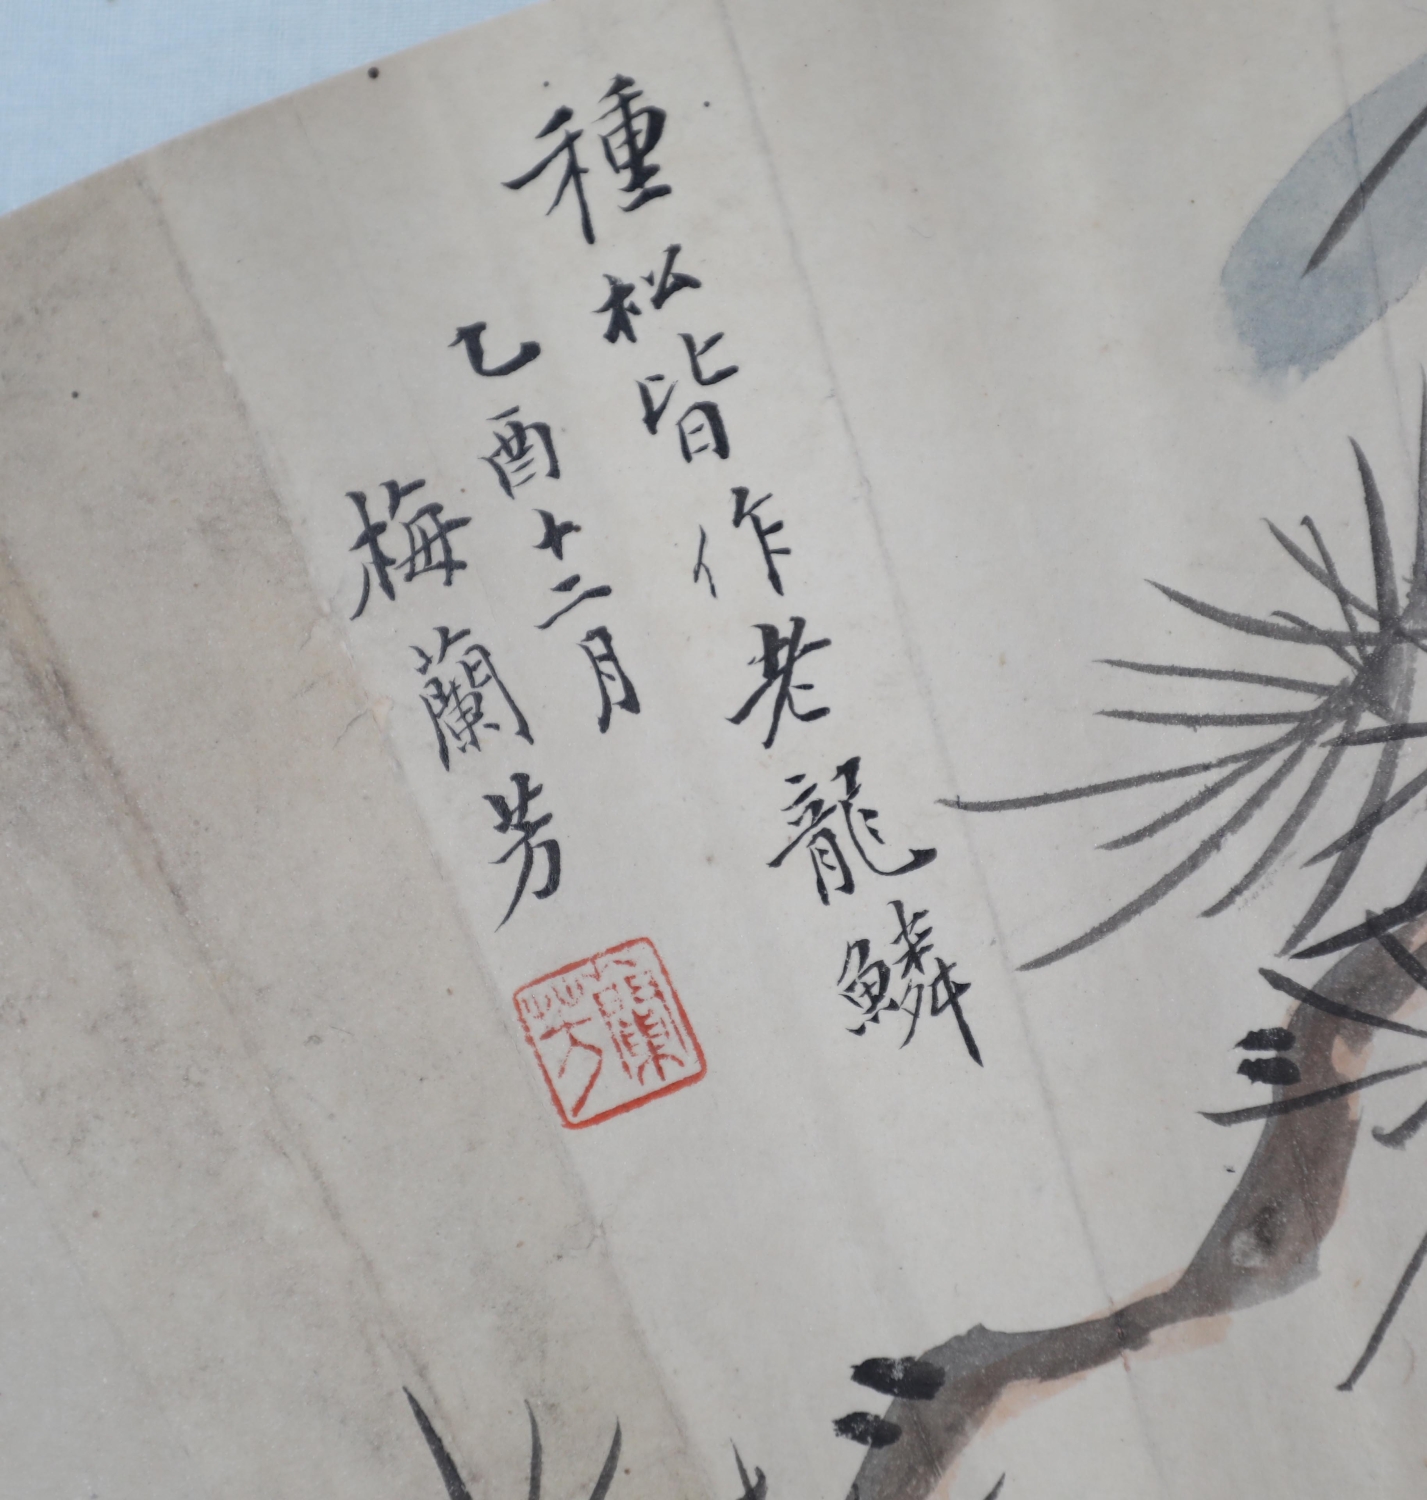 種松皆作老龍鱗
乙酉十二月
梅蘭芳
蘭芳